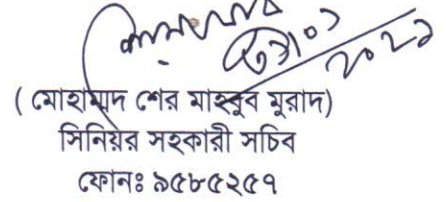 ( মোহাম্মাদ শের মাহবুব মুরাদ)
সিনিয়র সহকারী সচিব
ফোনঃ ৯৫৮৫২৫৭